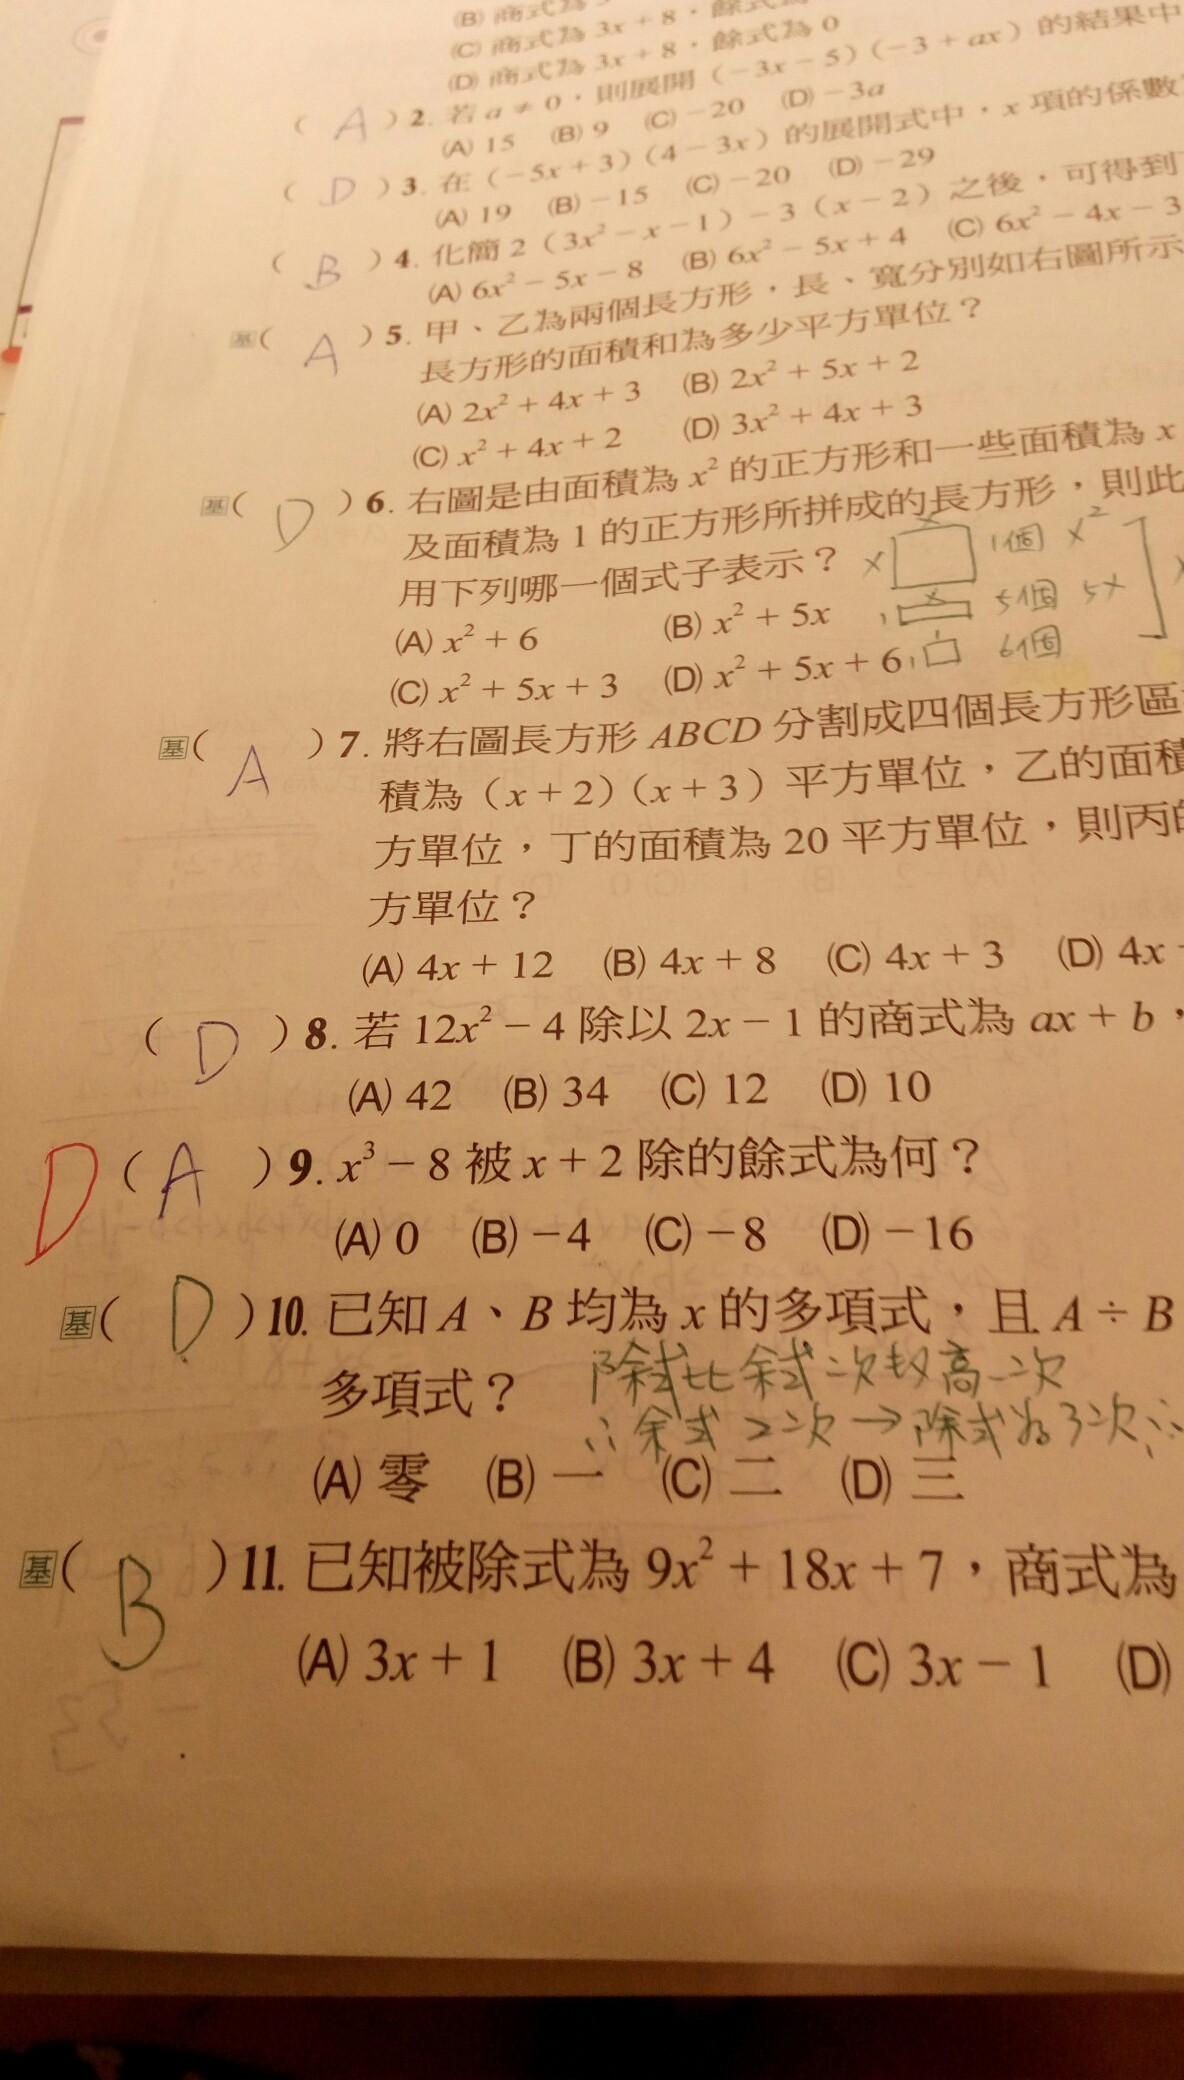 (B) 商式為
(C) 商式為 3x + 8，餘式為
(D) 商式為 3x + 8，餘式為 0
( A ) 2. 若 a ≠ 0，則展開（－3x－5）（－3 + ax）的結果中
(A) 15 (B) 9 (C)－20 (D)－3a
( D ) 3. 在（－5x + 3）（4－3x）的展開式中，x 項的係數
(A) 19 (B)－15 (C)－20 (D)－29
( B ) 4. 化簡 2（3x²－x－1）－3（x－2）之後，可得到
(A) 6x²－5x－8 (B) 6x²－5x + 4 (C) 6x²－4x－3
基( A ) 5. 甲、乙為兩個長方形，長、寬分別如右圖所示
長方形的面積和為多少平方單位？
(A) 2x² + 4x + 3 (B) 2x² + 5x + 2
(C) x² + 4x + 2 (D) 3x² + 4x + 3
基( D ) 6. 右圖是由面積為 x² 的正方形和一些面積為 x
及面積為 1 的正方形所拼成的長方形，則此
用下列哪一個式子表示？ x x 1個 x²
(A) x² + 6 (B) x² + 5x 1 x 5個 5x
(C) x² + 5x + 3 (D) x² + 5x + 6 1 1 6個
基( A ) 7. 將右圖長方形 ABCD 分割成四個長方形區
積為（x + 2）（x + 3）平方單位，乙的面積
方單位，丁的面積為 20 平方單位，則丙的
方單位？
(A) 4x + 12 (B) 4x + 8 (C) 4x + 3 (D) 4x
( D ) 8. 若 12x²－4 除以 2x－1 的商式為 ax + b，
(A) 42 (B) 34 (C) 12 (D) 10
D ( A ) 9. x³－8 被 x + 2 除的餘式為何？
(A) 0 (B)－4 (C)－8 (D)－16
基( D ) 10. 已知 A、B 均為 x 的多項式，且 A ÷ B
多項式？ 除式比余式次數高一次
∴余式2次→除式為3次∴
(A) 零 (B) 一 (C) 二 (D) 三
基( B ) 11. 已知被除式為 9x² + 18x + 7，商式為
(A) 3x + 1 (B) 3x + 4 (C) 3x－1 (D)